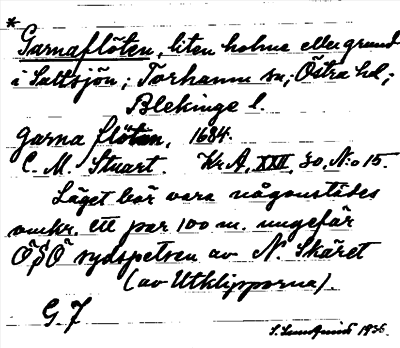 *
Garnaflöten, liten holme eller grund
i Saltsjön; Torhamns sn; Östra hd;
Blekinge l.
garna flöten, 1684.
C. M. Stuart. Kr.A, XXII, 30, N:o 15.
Läget bör vara någonstädes
omkr. ett par 100 m. ungefär
ÖSÖ sydspetsen av N. Skäret
(av Utklipporna).
G. 7
S. Lundqvist 1936.